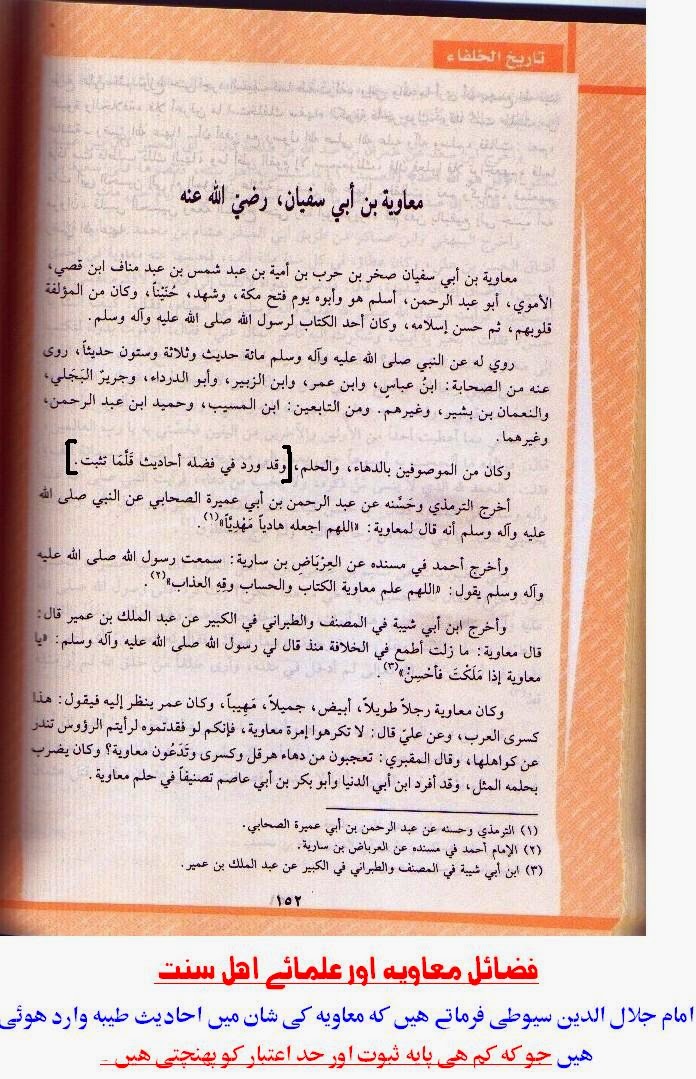 تاريخ الخلفاء
معاوية بن أبي سفيان، رضي الله عنه
معاوية بن أبي سفيان صخر بن حرب بن أمية بن عبد شمس بن عبد مناف ابن قصي،
الأموي، أبو عبد الرحمن، أسلم هو وأبوه يوم فتح مكة، وشهد، حُنَيْناً، وكان من المؤلفة
قلوبهم، ثم حسن إسلامه، وكان أحد الكتاب لرسول الله صلى الله عليه وآله وسلم.
روي له عن النبي صلى الله عليه وآله وسلم مائة حديث وثلاثة وستون حديثاً، روى
عنه من الصحابة: ابنُ عباسٍ، وابن عمر، وابن الزبير، وأبو الدرداء، وجريرٌ البَجَلي،
والنعمان بن بشير، وغيرهم. ومن التابعين: ابن المسيب، وحميد ابن عبد الرحمن،
وغيرهما.
وكان من الموصوفين بالدهاء، والحلم، [وقد ورد في فضله أحاديث قَلَّمَا تثبت.]
أخرج الترمذي وحَسَّنه عن عبد الرحمن بن أبي عميرة الصحابي عن النبي صلى الله
عليه وآله وسلم أنه قال لمعاوية: «اللهم اجعله هادياً مَهْدِيًّاً»(١).
وأخرج أحمد في مسنده عن العِرْبَاضِ بن سارية: سمعت رسول الله صلى الله عليه
وآله وسلم يقول: «اللهم علم معاوية الكتاب والحساب وقِهِ العذاب»(٢).
وأخرج ابن أبي شيبة في المصنف والطبراني في الكبير عن عبد الملك بن عمير قال:
قال معاوية: ما زلت أطمع في الخلافة منذ قال لي رسول الله صلى الله عليه وآله وسلم: «يا
معاوية إذا مَلَكْتَ فأحْسِنْ»(٣).
وكان معاوية رجلاً طويلاً، أبيض، جميلاً، مَهِيباً، وكان عمر ينظر إليه فيقول: هذا
كسرى العرب، وعن عليّ قال: لا تكرهوا إمرة معاوية، فإنكم لو فقدتموه لرأيتم الرؤوس تندر
عن كواهلها، وقال المقبري: تعجبون من دهاء هرقل وكسرى وتَدَعُون معاوية؟ وكان يضرب
بحلمه المثل، وقد أفرد ابن أبي الدنيا وأبو بكر بن أبي عاصم تصنيفاً في حلم معاوية.
(١) الترمذي وحسنه عن عبد الرحمن بن أبي عميرة الصحابي.
(٢) الإمام أحمد في مسنده عن العرباض بن سارية.
(٣) ابن أبي شيبة في المصنف والطبراني في الكبير عن عبد الملك بن عمير.
١٥٢
فضائل معاویه اور علمائے اهل سنت
امام جلال الدین سیوطی فرماتے هیں که معاویه کی شان میں احادیث طیبه وارد هوئی
هیں جو که کم هی پایه ثبوت اور حد اعتبار کو پهنچتی هیں۔